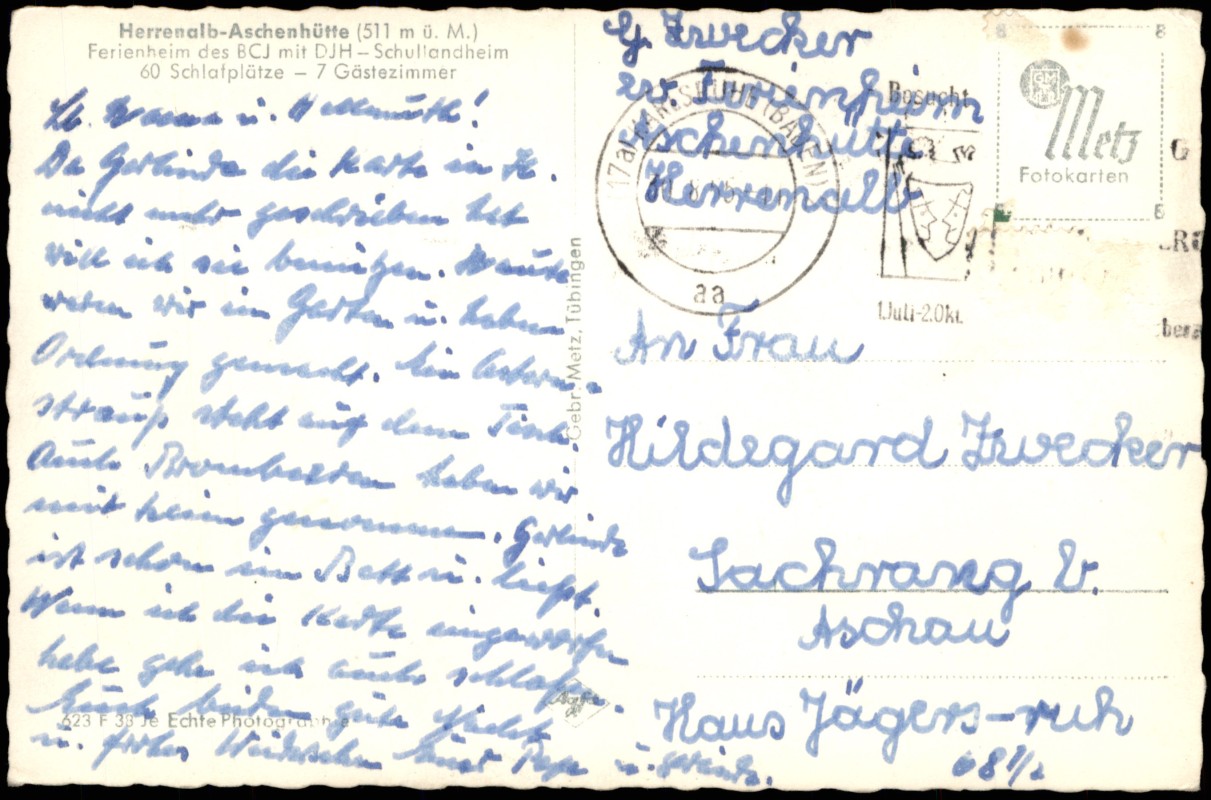 Herrenalb-Aschenhütte (511 m ü. M.)
Ferienheim des BCJ mit DJH – Schullandheim
60 Schlafplätze – 7 Gästezimmer
Lb. Mama u. Hellmuth!
Da Gerlinde die Karte in H.
nicht mehr geschrieben hat
will ich sie benützen. Heute
waren wir im Garten u. haben
Ordnung gemacht. Ein Astern-
strauß steht auf dem Tisch
Auch Brombeeren haben wir
mit heim genommen. Gerlinde
ist schon im Bett u. ließt.
Wenn ich die Karte eingeworfen
habe gehe ich auch schlafen.
Euch beiden gute Nacht
u. frohes Wiedersehen Euer Papa u. Gerlinde.
623 F 33 Je Echte Photographie
Agfa
Gebr. Metz, Tübingen
G. Zwecker
zw. Ferienheim
Aschenhütte
Herrenalb
17a KARLSRUHE (BADEN)
aa
Besucht
1.Juli-2.Okt.
Metz
Fotokarten
An Frau
Hildegard Zwecker
Sachrang b.
Aschau
Haus Jägers-ruh
68 1/2